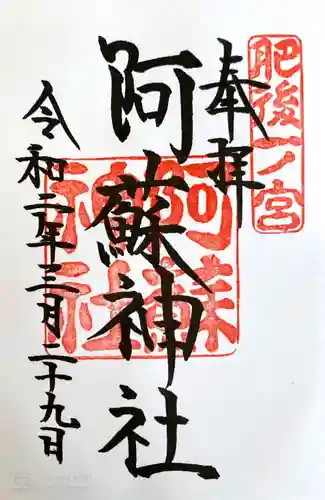 肥後一ノ宮
奉拝
阿蘇神社
阿蘇神社
令和二年三月二十九日